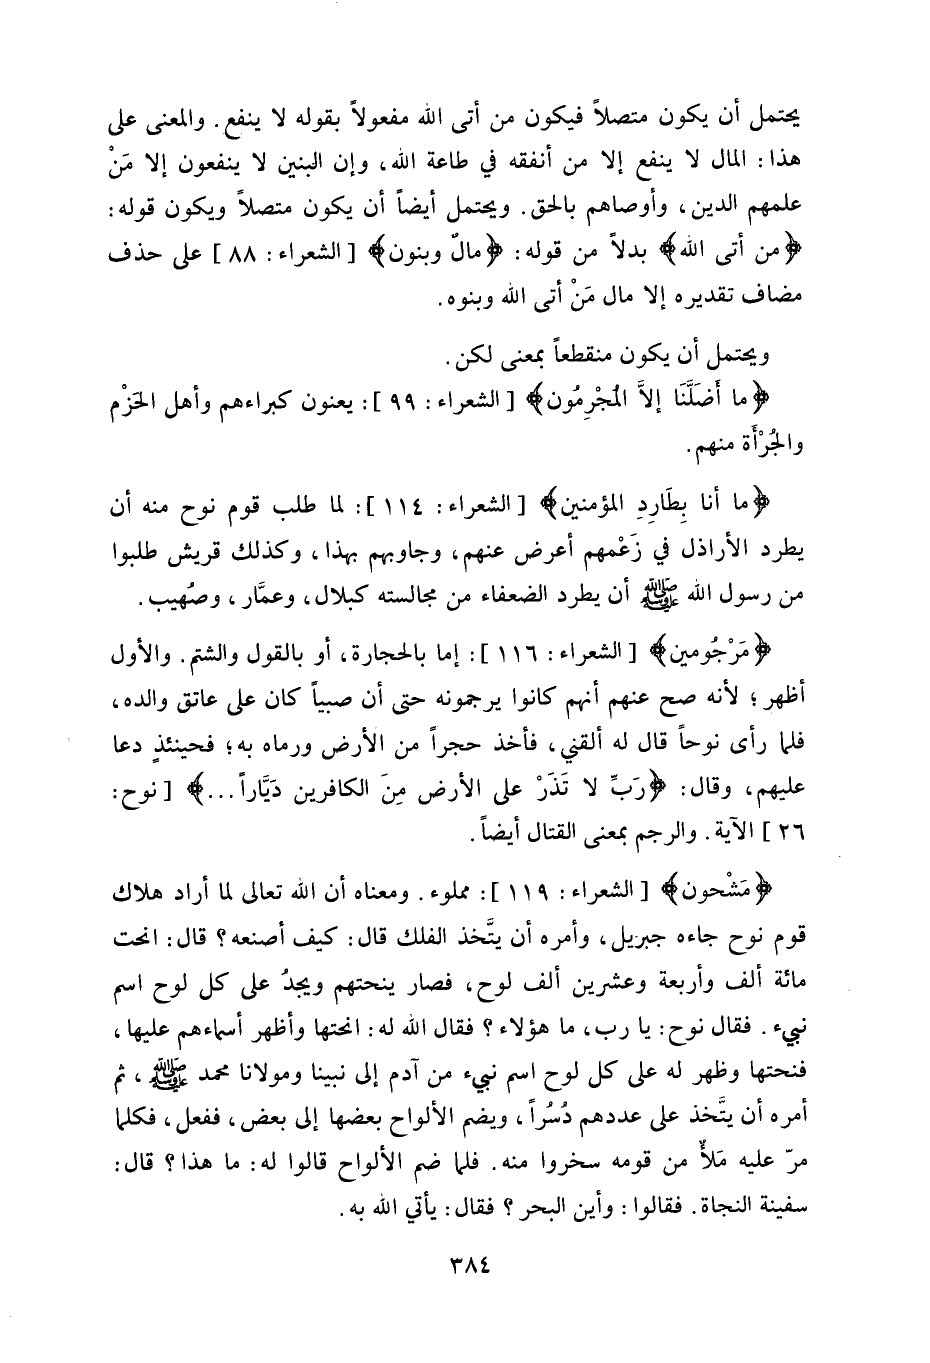 يحتمل أن يكون متصلاً فيكون من أتى الله مفعولاً بقوله لا ينفع. والمعنى على
هذا: المال لا ينفع إلا من أنفقه في طاعة الله، وإن البنين لا ينفعون إلا مَنْ
علمهم الدين، وأوصاهم بالحق. ويحتمل أيضاً أن يكون متصلاً ويكون قوله:
﴿من أتى الله﴾ بدلاً من قوله: ﴿مالٌ وبنون﴾ [الشعراء: ٨٨] على حذف
مضاف تقديره إلا مال مَنْ أتى الله وبنوه.
ويحتمل أن يكون منقطعاً بمعنى لكن.
﴿ما أَضَلَّنَا إلاَّ المُجْرِمُون﴾ [الشعراء: ٩٩]: يعنون كبراءهم وأهل الحَزْم
والجُرْأَة منهم.
﴿ما أنا بِطَارِدِ المؤمنين﴾ [الشعراء: ١١٤]: لما طلب قوم نوح منه أن
يطرد الأراذل في زَعْمهم أعرض عنهم، وجاوبهم بهذا، وكذلك قريش طلبوا
من رسول الله ﷺ أن يطرد الضعفاء من مجالسته كبلال، وعمَّار، وصُهيب.
﴿مَرْجُومين﴾ [الشعراء: ١١٦]: إما بالحجارة، أو بالقول والشتم. والأول
أظهر؛ لأنه صح عنهم أنهم كانوا يرجمونه حتى أن صبياً كان على عاتق والده،
فلما رأى نوحاً قال له ألقني، فأخذ حجراً من الأرض ورماه به؛ فحينئذٍ دعا
عليهم، وقال: ﴿رَبِّ لا تَذَرْ على الأرض مِنَ الكافرين دَيَّاراً...﴾ [نوح:
٢٦] الآية. والرجم بمعنى القتال أيضاً.
﴿مَشْحون﴾ [الشعراء: ١١٩]: مملوء. ومعناه أن الله تعالى لما أراد هلاك
قوم نوح جاءه جبريل، وأمره أن يتَّخذ الفلك قال: كيف أصنعه؟ قال: انحت
مائة ألف وأربعة وعشرين ألف لوح، فصار ينحتهم ويجدُ على كل لوح اسم
نبيء. فقال نوح: يا رب، ما هؤلاء؟ فقال الله له: انحتها وأظهر أسماءهم عليها،
فنحتها وظهر له على كل لوح اسم نبيء من آدم إلى نبينا ومولانا محمد ﷺ، ثم
أمره أن يتَّخذ على عددهم دُسُراً، ويضم الألواح بعضها إلى بعض، ففعل، فكلما
مرّ عليه مَلأٌ من قومه سخروا منه. فلما ضم الألواح قالوا له: ما هذا؟ قال:
سفينة النجاة. فقالوا: وأين البحر؟ فقال: يأتي الله به.
٣٨٤